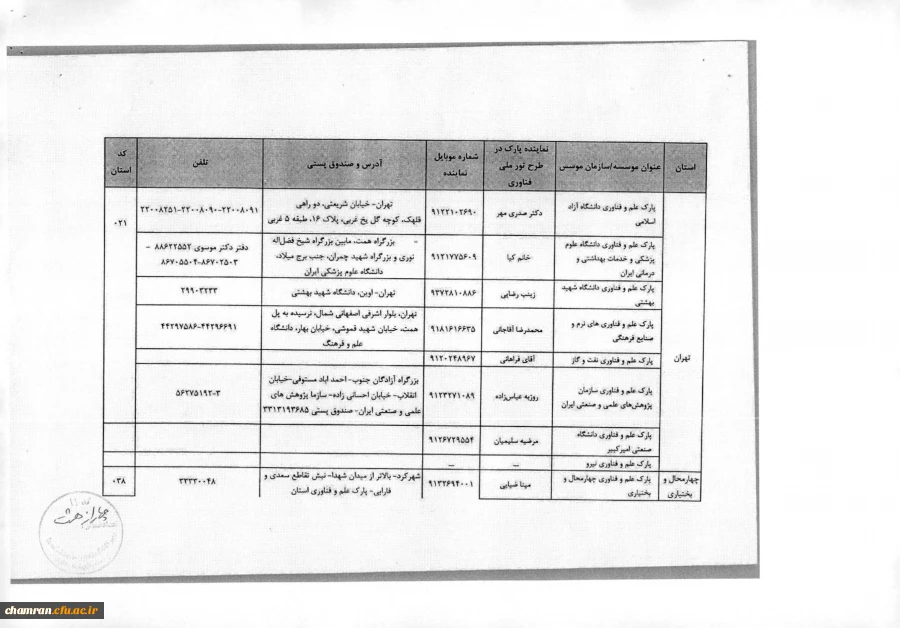 استان
عنوان موسسه/سازمان موسس
نماینده پارک در
طرح تور ملی
فناوری
شماره موبایل
نماینده
آدرس و صندوق پستی
تلفن
کد
استان
تهران
پارک علم و فناوری دانشگاه آزاد
اسلامی
دکتر صدری مهر
۹۱۲۲۱۰۲۶۹۰
تهران- خیابان شریعتی، دو راهی
قلهک، کوچه گل یخ غربی، پلاک ۱۶، طبقه ۵ غربی
۲۲۰۰۸۲۵۱-۲۲۰۰۸۰۹۰-۲۲۰۰۸۰۹۱
۰۲۱
پارک علم و فناوری دانشگاه علوم
پزشکی و خدمات بهداشتی و
درمانی ایران
خانم کیا
۹۱۲۱۷۷۵۶۰۹
- بزرگراه همت، مابین بزرگراه شیخ فضل‌اله
نوری و بزرگراه شهید چمران، جنب برج میلاد،
دانشگاه علوم پزشکی ایران
دفتر دکتر موسوی ۸۸۶۲۲۵۵۲ -
۸۶۷۰۵۵۰۴-۸۶۷۰۲۵۰۳
پارک علم و فناوری دانشگاه شهید
بهشتی
زینب رضایی
۹۳۷۲۸۱۰۸۸۶
تهران- اوین، دانشگاه شهید بهشتی
۲۹۹۰۳۲۳۳
پارک علم و فناوری های نرم و
صنایع فرهنگی
محمدرضا آقاجانی
۹۱۸۱۶۱۶۶۳۵
تهران، بلوار اشرفی اصفهانی شمال، نرسیده به پل
همت، خیابان شهید قموشی، خیابان بهار، دانشگاه
علم و فرهنگ
۴۴۲۹۷۵۸۶-۴۴۲۹۶۶۹۱
پارک علم و فناوری نفت و گاز
آقای فراهانی
۹۱۲۰۲۴۸۹۶۷
پارک علم و فناوری سازمان
پژوهش‌های علمی و صنعتی ایران
روزبه عباس‌زاده
۹۱۲۳۲۷۱۰۸۹
بزرگراه آزادگان جنوب- احمد اباد مستوفی-خیابان
انقلاب- خیابان احسانی زاده- سازما پژوهش های
علمی و صنعتی ایران- صندوق پستی ۳۳۱۳۱۹۳۶۸۵
۵۶۲۷۵۱۹۲-۳
پارک علم و فناوری دانشگاه
صنعتی امیرکبیر
مرضیه سلیمیان
۹۱۲۶۷۲۹۵۵۴
پارک علم و فناوری نیرو
–
–
چهارمحال و
بختیاری
پارک علم و فناوری چهارمحال و
بختیاری
مینا ضیایی
۹۱۳۲۶۹۴۰۰۱
شهرکرد- بالاتر از میدان شهدا- نبش تقاطع سعدی و
فارابی- پارک علم و فناوری استان
۳۳۳۳۰۰۴۸
۰۳۸
chamran.cfu.ac.ir